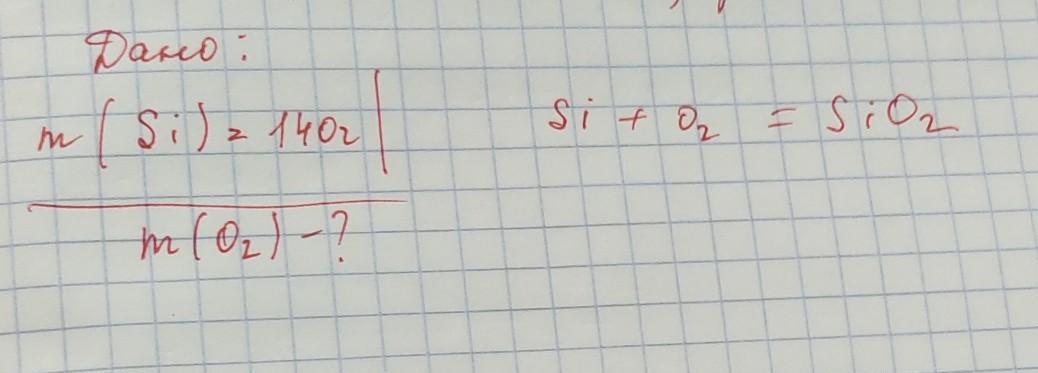 Дано:
m(Si)=140г
Si + O₂ = SiO₂
m(O₂)-?